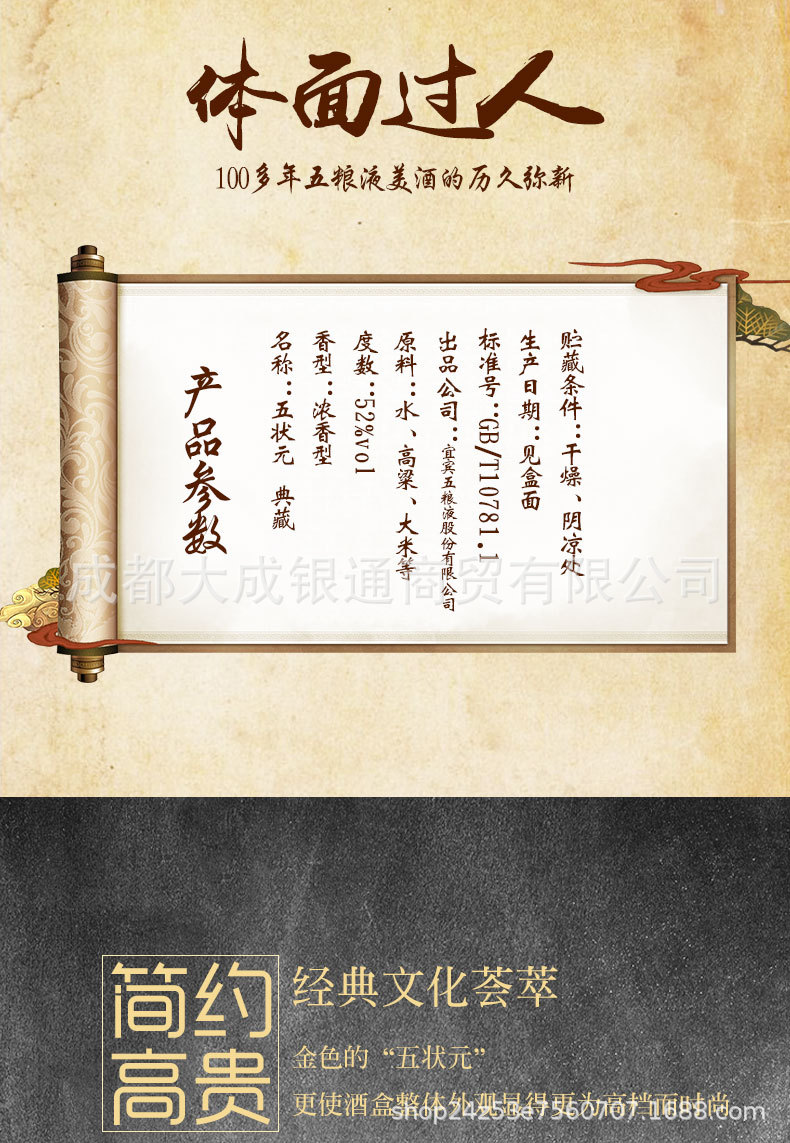 体面过人
100多年五粮液美酒的历久弥新
产品参数
名称：五状元 典藏
香型：浓香型
度数：52%vol
原料：水、高粱、大米等
出品公司：宜宾五粮液股份有限公司
标准号：GB/T10781.1
生产日期：见盒面
贮藏条件：干燥、阴凉处
成都大成银通商贸有限公司
简约
高贵
经典文化荟萃
金色的“五状元”
更使酒盒整体外观显得更为高档而时尚
shop24253e7560707.1688.com